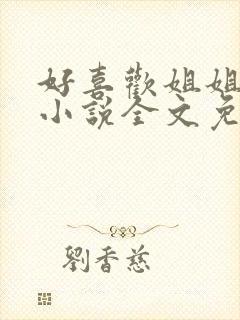 好喜歡姐姐
小說全文免
劉香慈